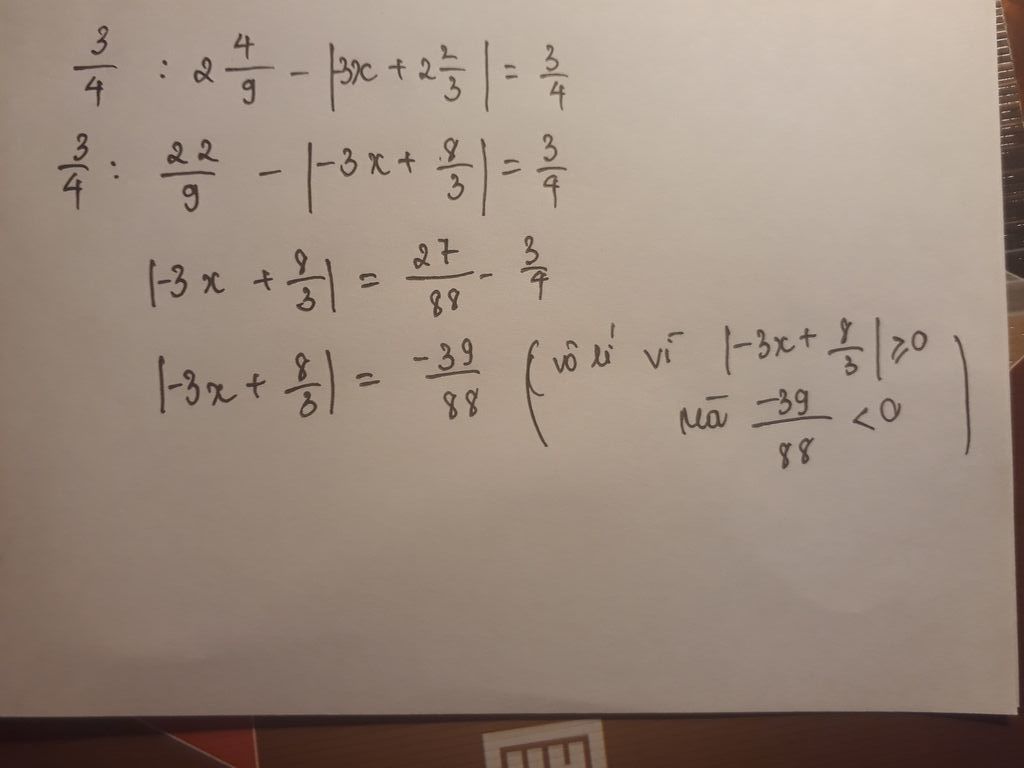 3/4 : 2 4/9 - |-3x + 2 2/3| = 3/4
3/4 : 22/9 - |-3x + 8/3| = 3/4
|-3x + 8/3| = 27/88 - 3/4
|-3x + 8/3| = -39/88 (vô lí vì |-3x + 8/3| ⩾ 0
mà -39/88 < 0)